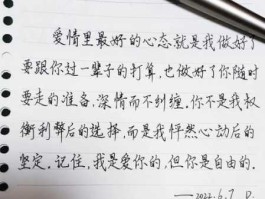 爱情里最好的心态就是我做好了
要跟你过一辈子的打算，也做好了你随时
要走的准备，深情而不纠缠。你不是我权
衡利弊后的选择，而是我怦然心动后的
坚定。记住，我是爱你的，但你是自由的。
——2022.6.7 D.